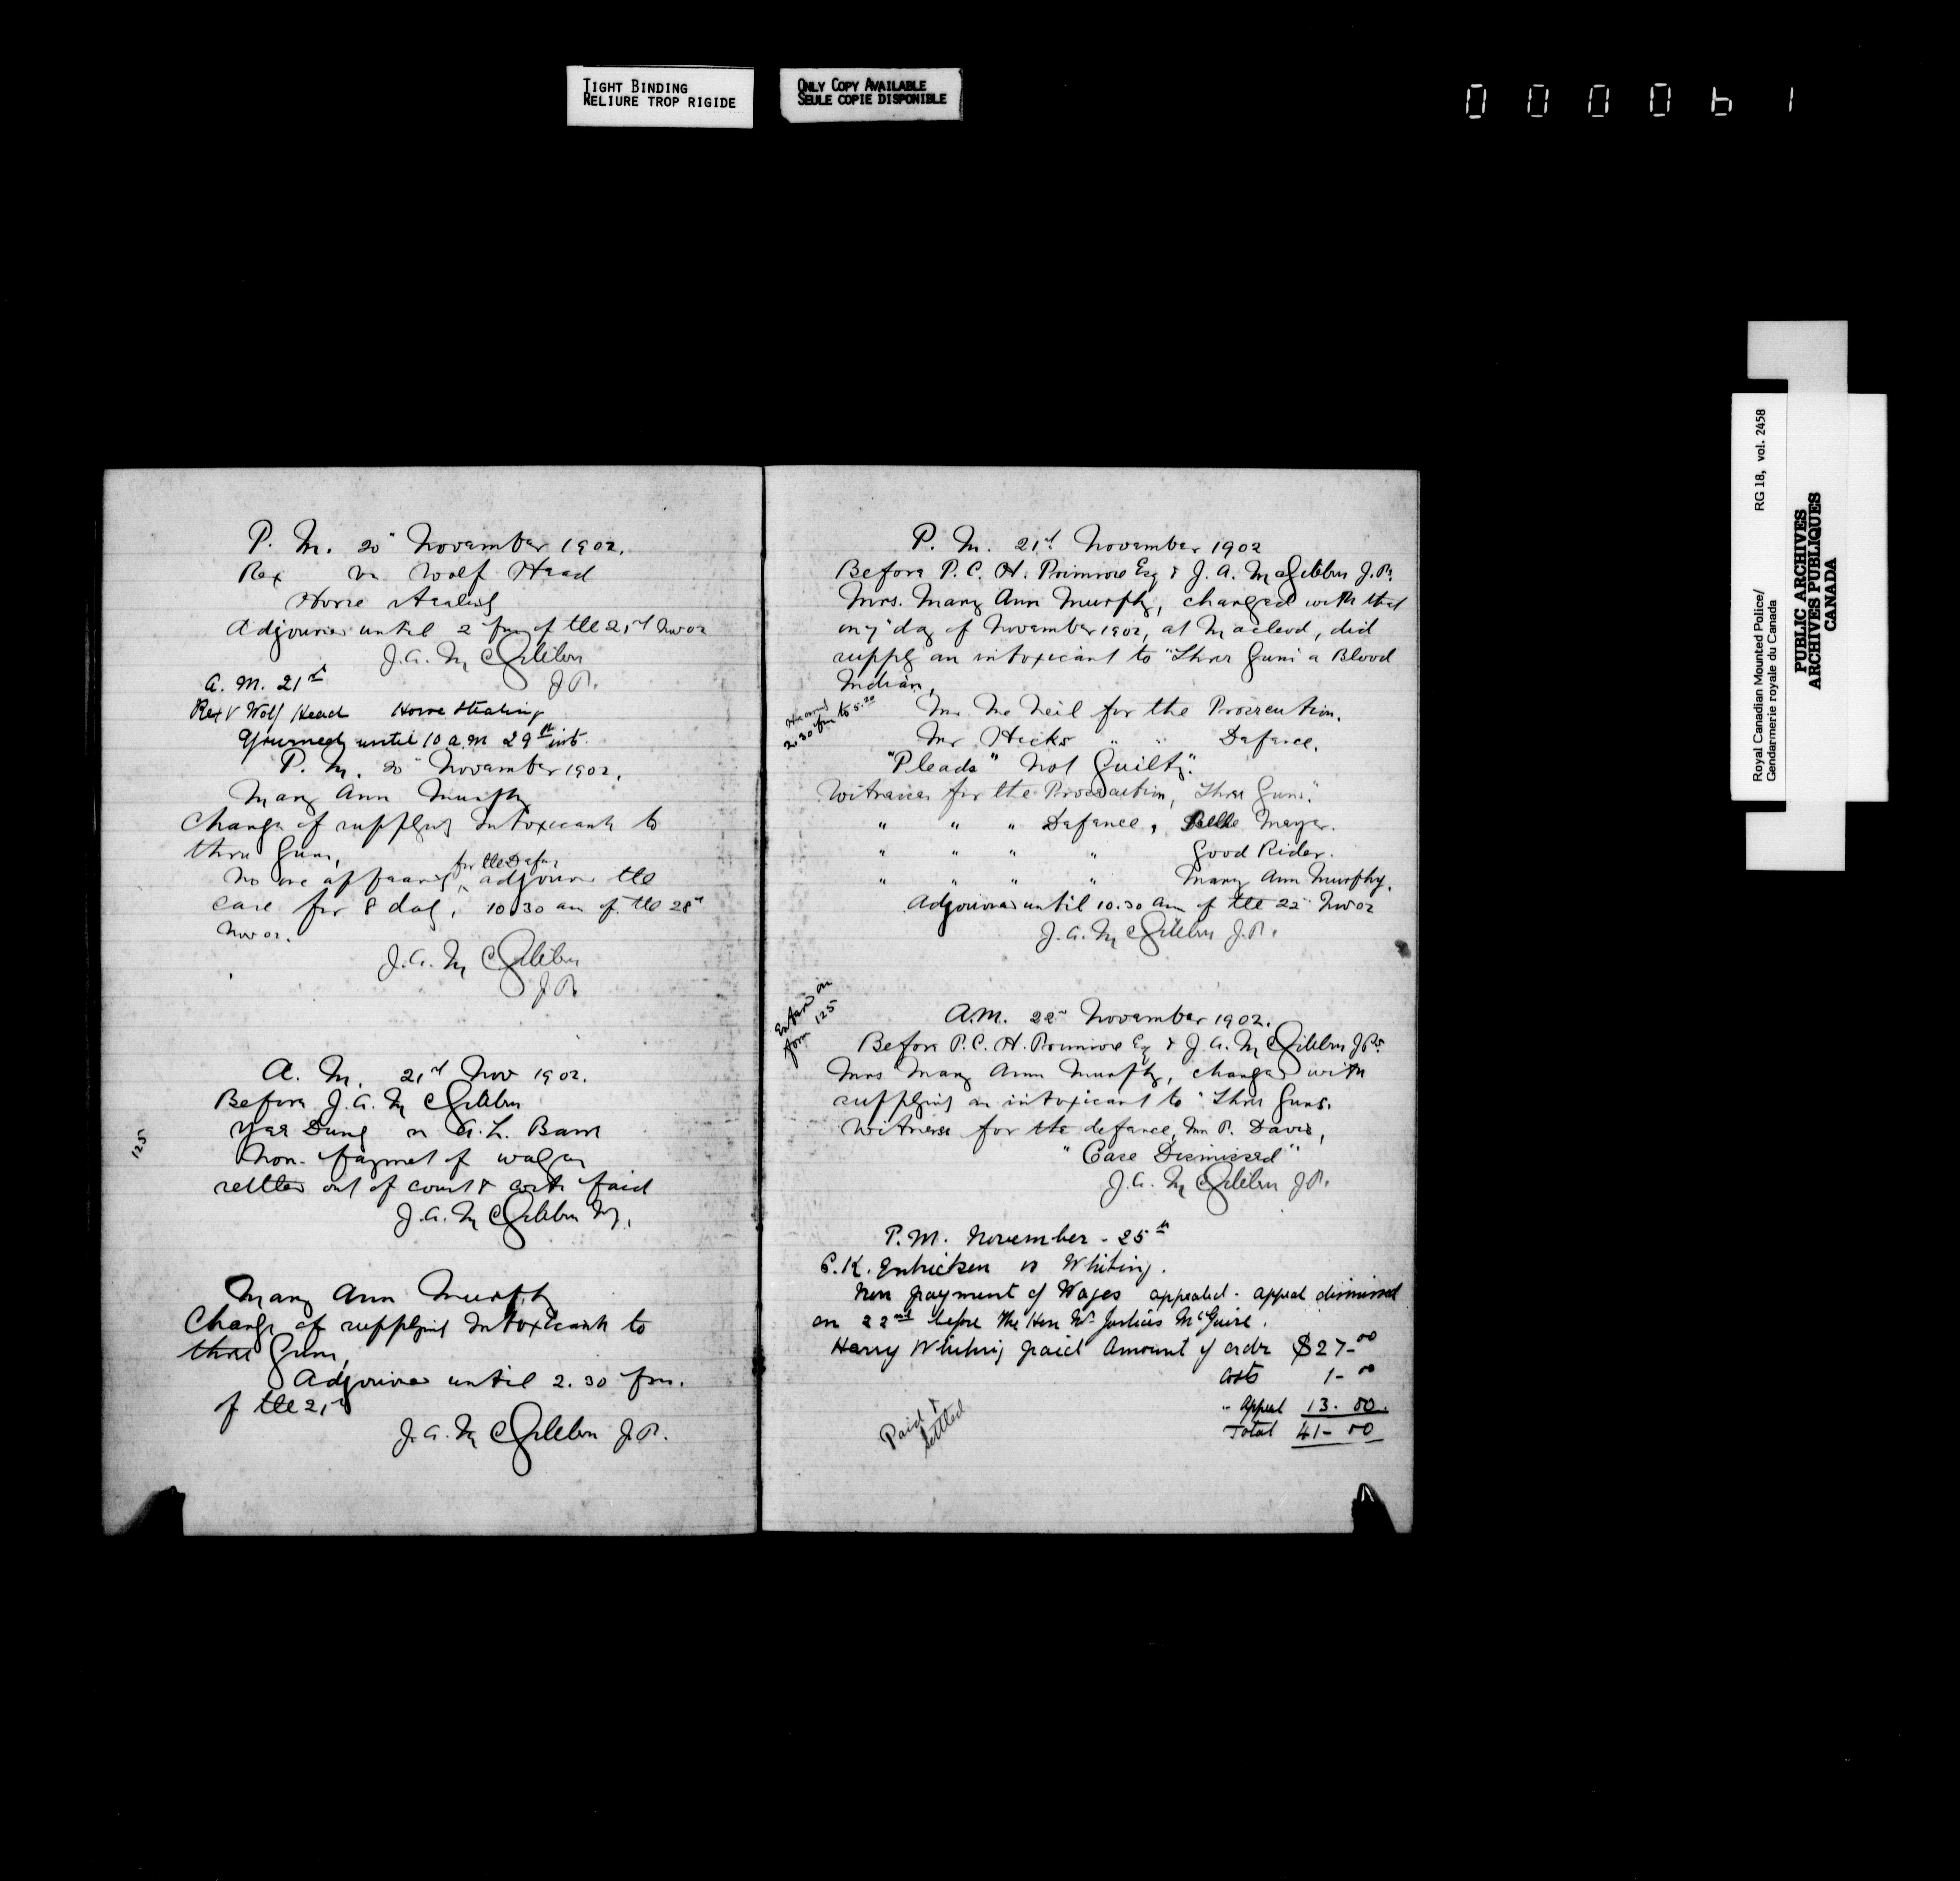 TIGHT BINDING
RELIURE TROP RIGIDE
ONLY COPY AVAILABLE
SEULE COPIE DISPONIBLE
Royal Canadian Mounted Police/ RG 18, vol. 2458
Gendarmerie royale du Canada
PUBLIC ARCHIVES
ARCHIVES PUBLIQUES
CANADA
P. M. 20" November 1902.
Rex vs Wolf Head
Horse stealing
Adjourned until 2 pm of the 21st Nov 02
J.A. McGibbon
J.P.
A. M. 21st
Rex V Wolf Head Horse Stealing
until 10 a.m 29th inst.
P. M. 20" November 1902.
Mary Ann Murphy
Charge of supplying Intoxicants to
three Guns,
for the Defence
No one appearing adjourned the
case for 8 days, 10.30 am of the 28"
Nov 02.
J.A. McGibbon
J.P.
A. M. 21st Nov 1902.
Before J.A. McGibbon
Yee Dung vs A.L. Barr
125
Non-payment of wages
settled out of court & costs paid
J.A. McGibbon
Mary Ann Murphy
Charge of supplying Intoxicants to
three Guns,
Adjourned until 2.30 pm.
of the 21st
J.A. McGibbon J.P.
P. M. 21st November 1902
Before P.C.H. Primrose Esq & J.A. McGibbon J.Ps.
Mrs. Mary Ann Murphy, charged with that
on 7" day of November 1902, at Macleod, did
supply an intoxicant to "Three Guns" a Blood
Indian,
2.30 pm to 5.30
Mr. McNeil for the Prosecution.
Mr Hicks " " Defence.
"Pleads" Not Guilty".
Witnesses for the Prosecution, "Three Guns".
" " " Defence, Belle Meyer.
" " " " Good Rider.
" " " " Mary Ann Murphy.
Adjourned until 10.30 am of the 22" Nov 02
J.A. McGibbon J.P.
Entered on
form 125
A.M. 22" November 1902.
Before P.C.H. Primrose Esq & J.A. McGibbon JPs.
Mrs Mary Ann Murphy, charged with
supplying an intoxicant to "Three Guns.
Witness for the defence, Mr P. Davis,
"Case Dismissed"
J.A. McGibbon J.P.
P.M. November - 25th
Whiting.
Non payment of Wages appealed - appeal dismissed
on 22nd before The Hon Mr Justice McGuire.
Harry Whiting paid Amount of order $27-00
Costs 1-00
" Appeal 13.00.
Total 41-00
Paid &
Settled